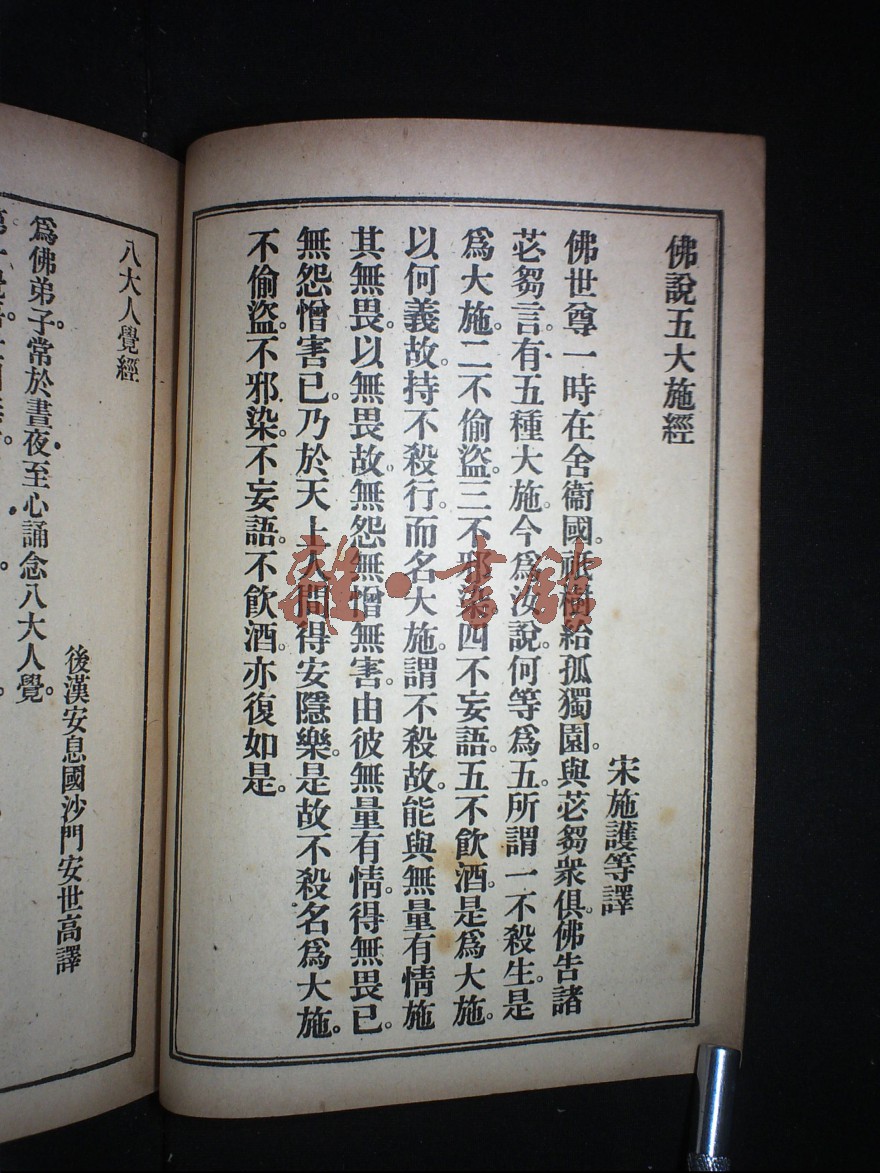 佛說五大施經
宋施護等譯
佛世尊一時在舍衞國。祇樹給孤獨園。與苾芻衆俱。佛告諸
苾芻言。有五種大施。今爲汝說。何等爲五。所謂一不殺生。是
爲大施。二不偷盜。三不邪染。四不妄語。五不飮酒。是爲大施。
以何義故。持不殺行。而名大施。謂不殺故。能與無量有情施
其無畏。以無畏故。無怨無憎無害。由彼無量有情。得無畏已。
無怨憎害已。乃於天上人間得安隱樂。是故不殺名爲大施。
不偷盜。不邪染。不妄語。不飮酒。亦復如是。
八大人覺經
後漢安息國沙門安世高譯
爲佛弟子。常於晝夜至心誦念八大人覺。
雜·書館